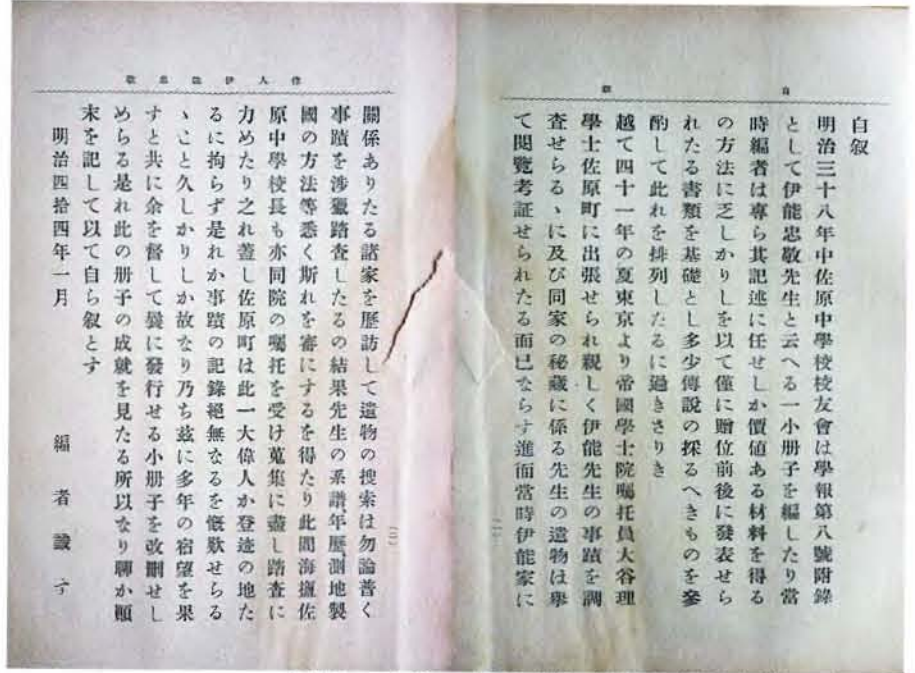 自叙
自叙
明治三十八年中佐原中學校校友會は學報第八號附錄
として伊能忠敬先生と云へる一小册子を編したり當
時編者は專ら其記述に任せしか價値ある材料を得る
の方法に乏しかりしを以て僅に贈位前後に發表せら
れたる書類を基礎とし多少傳說の採るへきものを參
酌して此れを排列したるに過きさりき
越て四十一年の夏東京より帝國學士院囑托員大谷理
學士佐原町に出張せられ親しく伊能先生の事蹟を調
査せらるゝに及び同家の秘藏に係る先生の遺物は擧
て閱覽考証せられたる而已ならす進而當時伊能家に
(一)
偉人伊能忠敬
關係ありたる諸家を歷訪して遺物の搜索は勿論普く
事蹟を涉獵踏査したるの結果先生の系譜、年歷、測地製
國の方法等悉く斯れを審にするを得たり此間海鹽佐
原中學校長も亦同院の囑托を受け蒐集に盡し踏査に
力めたり之れ蓋し佐原町は此一大偉人か登迹の地た
るに拘らず是れか事蹟の記錄絕無なるを慨歎せらる
ゝこと久しかりしか故なり乃ち玆に多年の宿望を果
すと共に余を督して曩に發行せる小册子を改刪せし
めらる是れ此の册子の成就を見たる所以なり聊か顚
末を記して以て自ら叙とす
明治四拾四年一月
編者識す
(二)